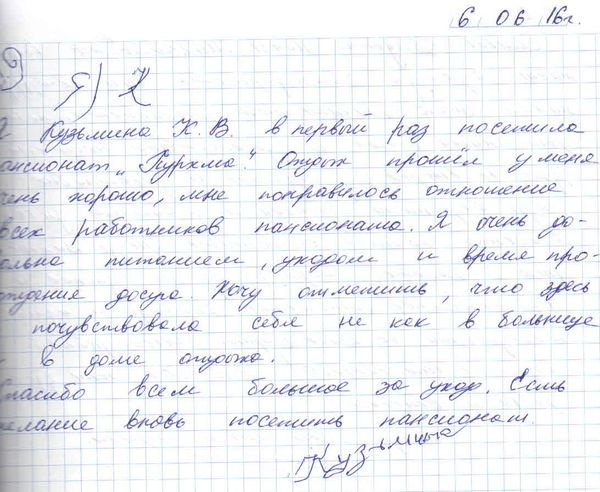 6 06 16г.
9
Кузьмина К. В. в первый раз посетила
ансионат „Турхма". Отдых прошёл у меня
чень хорошо, мне понравилось отношение
всех работников пансионата. Я очень до-
ольна питанием, уходом и время про-
ждение досуга. Хочу отметить, что здесь
почувствовала себя не как в больнице
в доме отдыха.
Спасибо всем большое за уход. Есть
желание вновь посетить пансионат.
Кузьмина